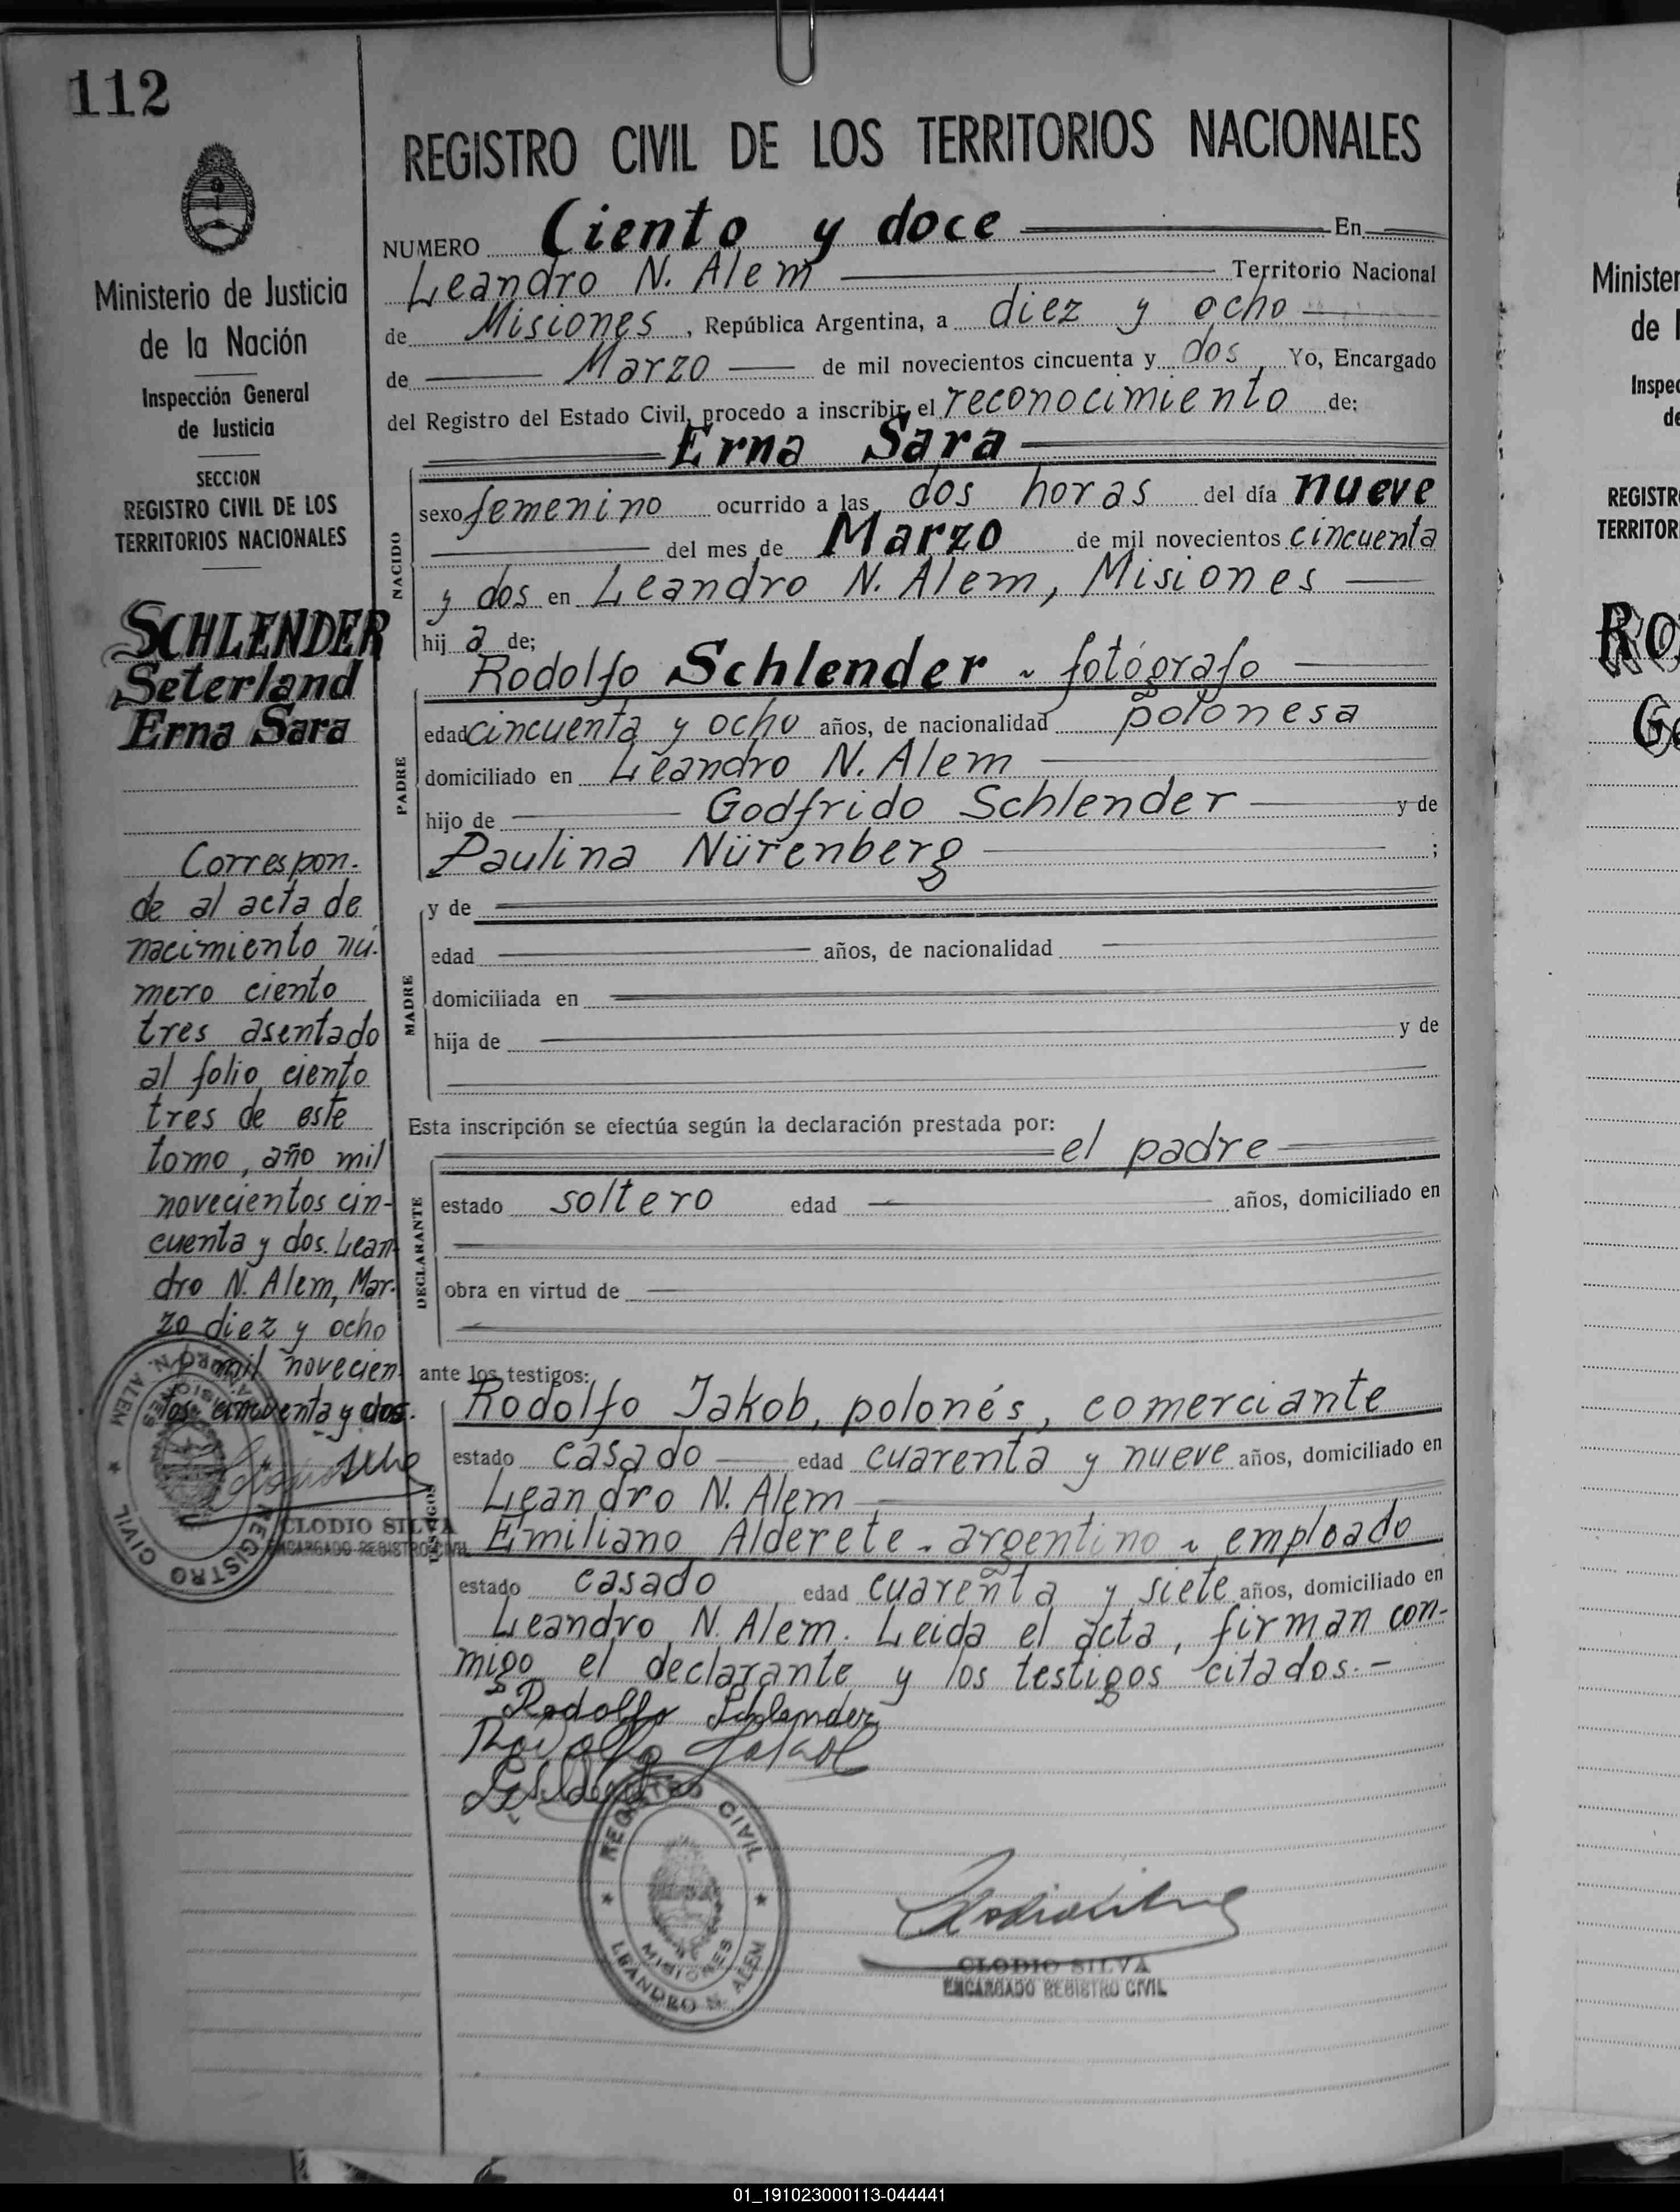 112
Ministerio de Justicia
de la Nación
Inspección General
de Justicia
SECCION
REGISTRO CIVIL DE LOS
TERRITORIOS NACIONALES
SCHLENDER
Seterland
Erna Sara
Correspon-
de al acta de
nacimiento nú-
mero ciento
tres asentado
al folio ciento
tres de este
tomo, año mil
novecientos cin-
cuenta y dos. Lean-
dro N. Alem, Mar-
zo diez y ocho
mil novecien
tos cincuenta y dos.
CLODIO SILVA
ENCARGADO REGISTRO CIVIL
REGISTRO CIVIL
LEANDRO N. ALEM
MISIONES
REGISTRO CIVIL DE LOS TERRITORIOS NACIONALES
NUMERO Ciento y doce En
Leandro N. Alem Territorio Nacional
de Misiones, República Argentina, a diez y ocho
de Marzo de mil novecientos cincuenta y dos Yo, Encargado
del Registro del Estado Civil, procedo a inscribir el reconocimiento de:
Erna Sara
NACIDO
sexo femenino ocurrido a las dos horas del día nueve
del mes de Marzo de mil novecientos cincuenta
y dos en Leandro N. Alem, Misiones
hij a de;
Rodolfo Schlender - fotógrafo
PADRE
edad cincuenta y ocho años, de nacionalidad polonesa
domiciliado en Leandro N. Alem
hijo de Godfrido Schlender y de
Paulina Nürenberg ;
MADRE
y de
edad años, de nacionalidad
domiciliada en
hija de y de
Esta inscripción se efectúa según la declaración prestada por:
el padre
DECLARANTE
estado soltero edad años, domiciliado en
obra en virtud de
ante los testigos:
TESTIGOS
Rodolfo Jakob, polonés, comerciante
estado casado edad cuarenta y nueve años, domiciliado en
Leandro N. Alem
Emiliano Alderete - argentino - empleado
estado casado edad cuarenta y siete años, domiciliado en
Leandro N. Alem. Leida el acta, firman con-
migo el declarante y los testigos citados.-
Rodolfo Schlender
Rodolfo Jakob
REGISTRO CIVIL
LEANDRO N. ALEM
MISIONES
CLODIO SILVA
ENCARGADO REGISTRO CIVIL
Minister
de l
Inspec
de
REGISTR
TERRITOR
RO
Ge
01_191023000113-044441